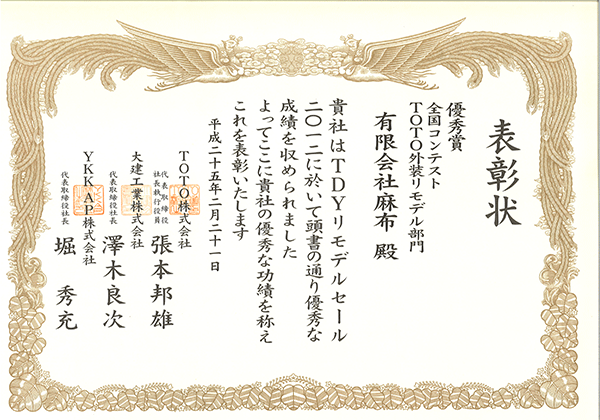 表彰状
優秀賞
全国コンテスト
TOTO外装リモデル部門
有限会社麻布 殿
貴社はTDYリモデルセール
二〇一二に於いて頭書の通り優秀な
成績を収められました
よってここに貴社の優秀な功績を称え
これを表彰いたします
平成二十五年二月二十一日
TOTO株式会社
代表取締役
社長執行役員
張本邦雄
大建工業株式会社
代表取締役社長
澤木良次
YKK AP株式会社
代表取締役社長
堀 秀充